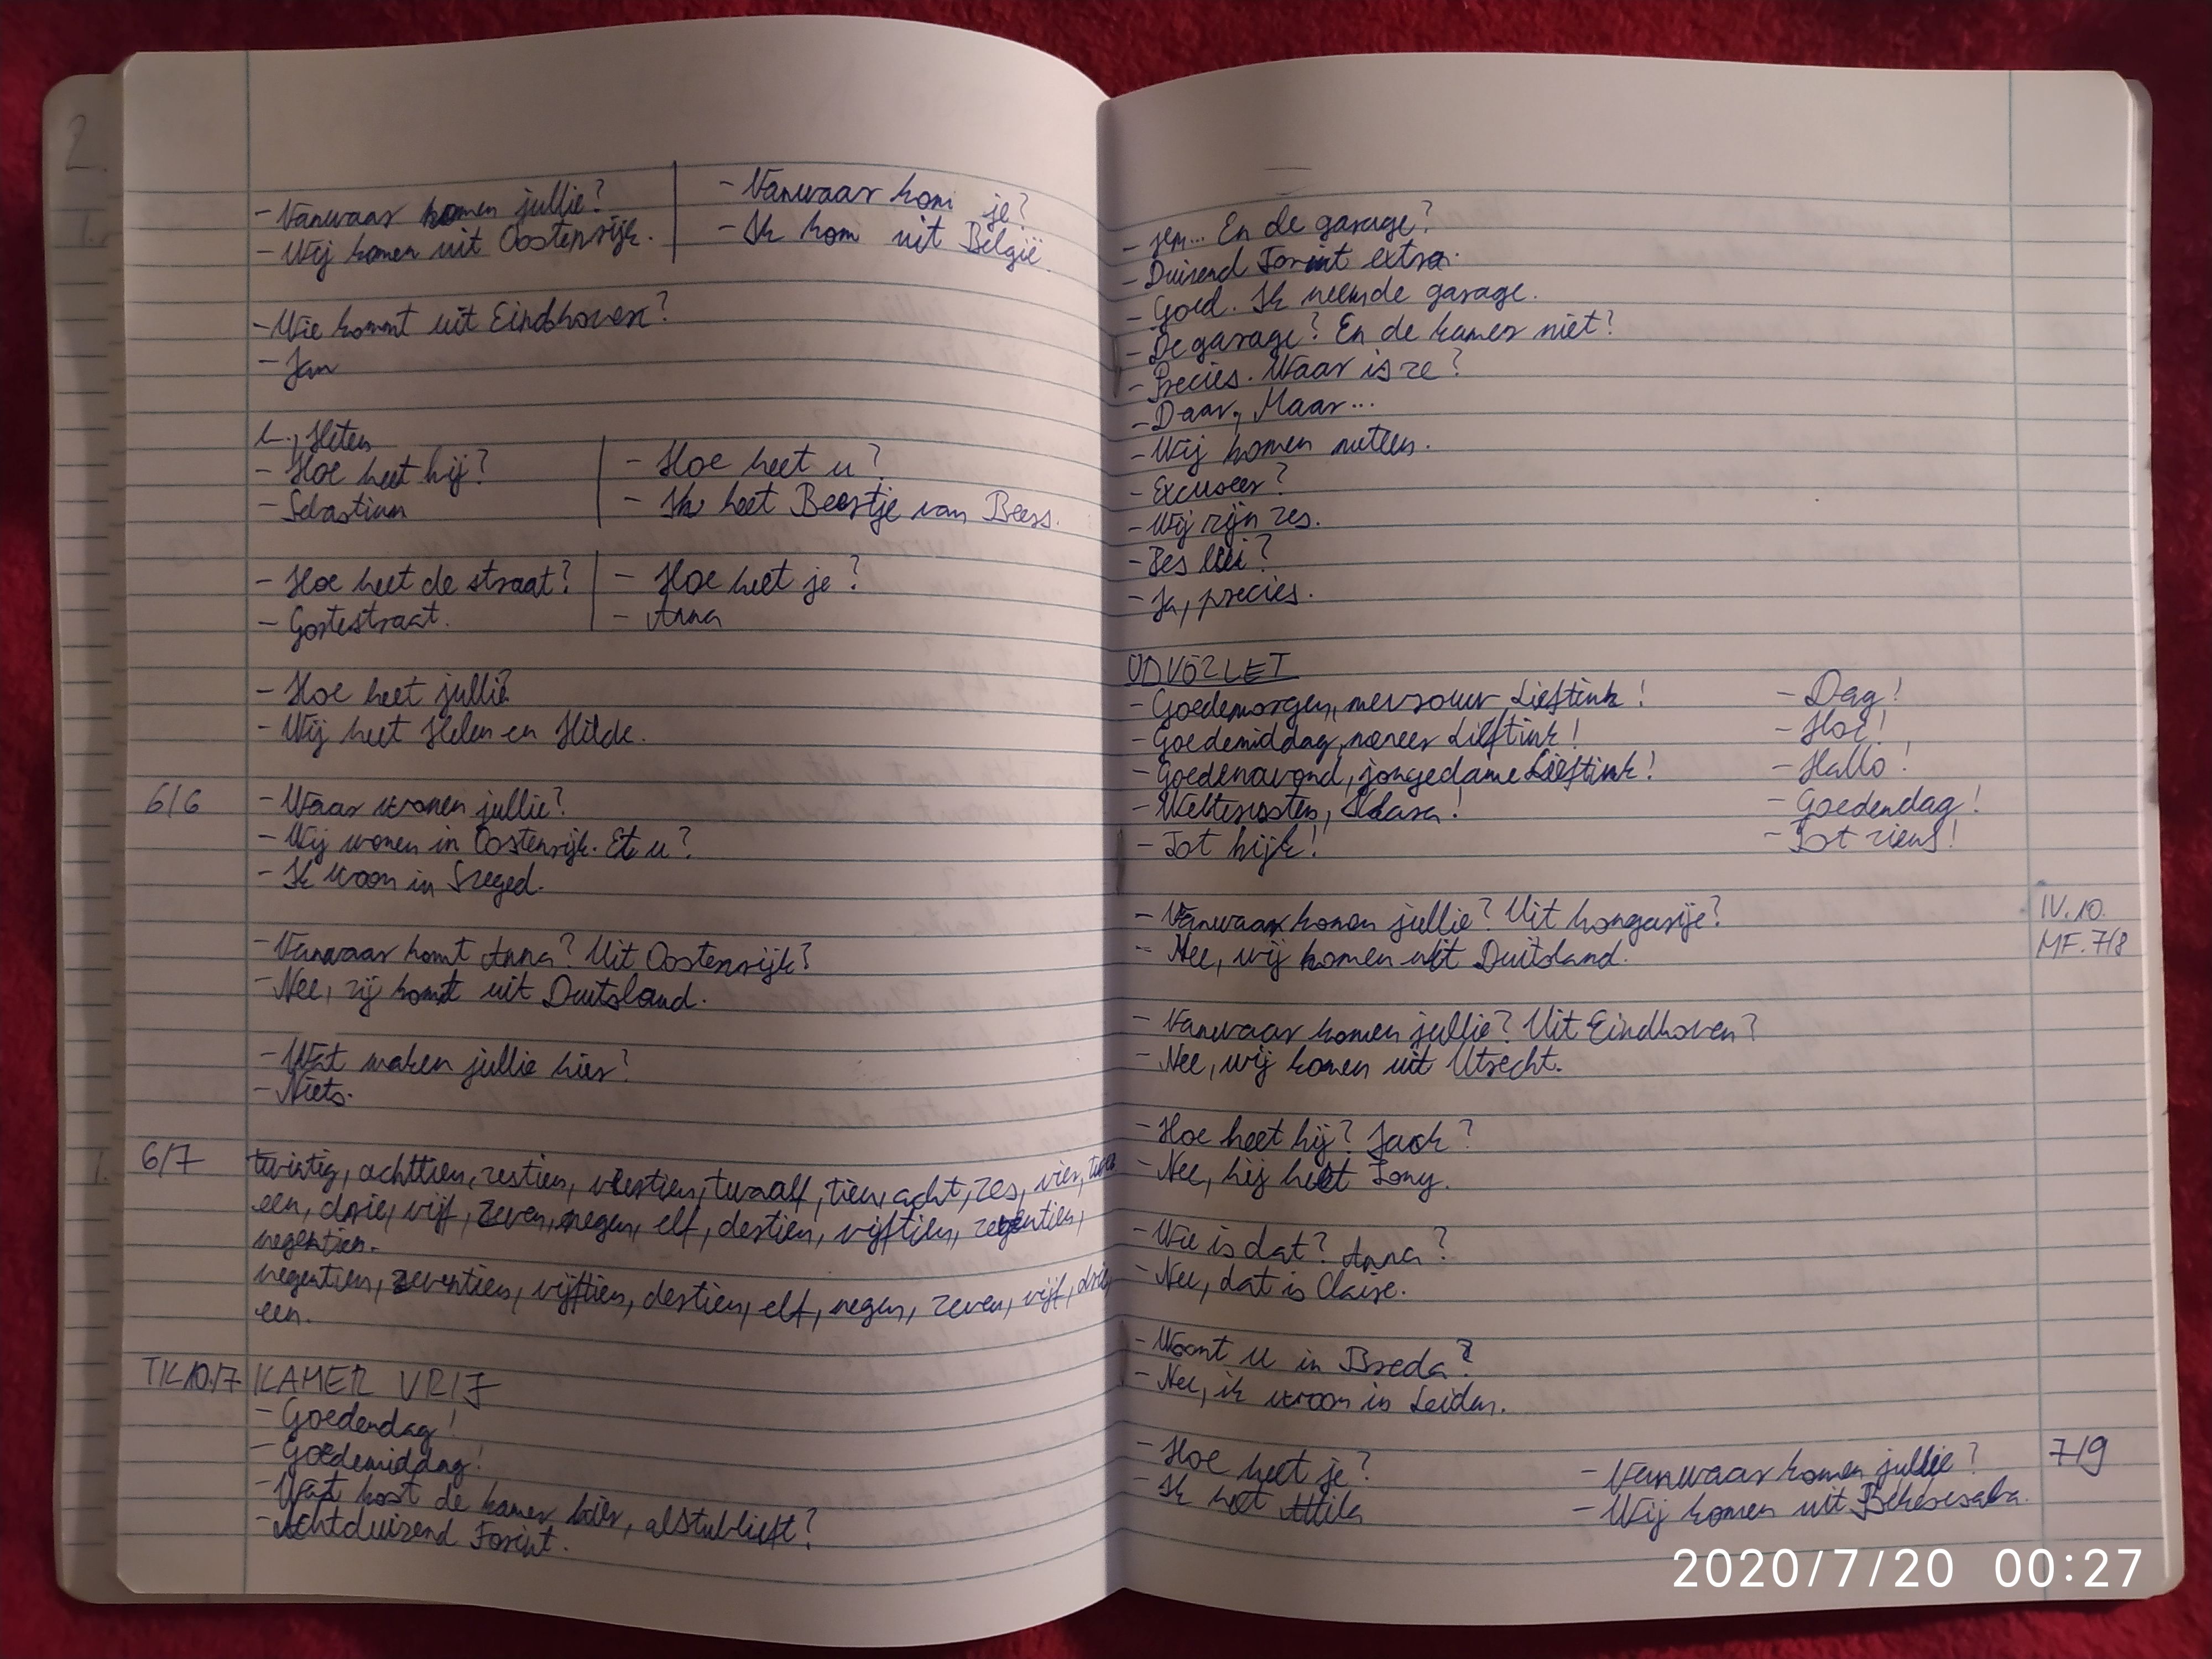 2.
- Vanwaar komen jullie?
- Wij komen uit Oostenrijk.
- Vanwaar kom je?
- Ik kom uit België.
- Wie kommt uit Eindhoven?
- Jan
- Hoe heet hij?
- Sebastiaan
- Hoe heet u?
- Ik heet Beestje van Beess.
- Hoe heet de straat?
- Gortestraat.
- Hoe heet je?
- Anna
- Hoe heet jullie?
- Wij heet Helen en Hilde.
6/6
- Waar wonen jullie?
- Wij wonen in Oostenrijk. Et u?
- Ik woon in Szeged.
- Vanwaar komt Anna? Uit Oostenrijk?
- Nee, zij komt uit Duitsland.
- Wat maken jullie hier?
- Niets.
6/7
twintig, achttien, zestien, viertien, twaalf, tien, acht, zes, vier, twee
een, drie, vijf, zeven, negen, elf, destien, vijftien, zeventien,
negentien.
negentien, zeventien, vijftien, destien, elf, negen, zeven, vijf, drie,
een.
TK10/7 KAMER VRIJ
- Goedendag!
- Goedemiddag!
- Wat kost de kamer hier, alstublieft?
- Achtduizend Forint.
- Hm... En de garage?
- Duizend Forint extra.
- Goed. Ik neem de garage.
- De garage? En de kamer niet?
- Precies. Waar is ze?
- Daar, Maar...
- Wij komen meteen.
- Excuseer?
- Wij zijn zes.
- Zes lui?
- Ja, precies.
ÜDVÖZLET
- Goedemorgen, mevrouw Lieftink!
- Goedemiddag, meneer Lieftink!
- Goedenavond, jongedame Lieftink!
- Welterusten, Klara!
- Tot kijk!
- Dag!
- Hoi!
- Hallo!
- Goedendag!
- Tot ziens!
IV.10.
MF. 7/8
- Vanwaar komen jullie? Uit hongarije?
- Nee, wij komen uit Duitsland.
- Vanwaar komen jullie? Uit Eindhoven?
- Nee, wij komen uit Utrecht.
- Hoe heet hij? Jack?
- Nee, hij heet Tony.
- Wie is dat? Anna?
- Nee, dat is Claire.
- Woont u in Breda?
- Nee, ik woon in Leiden.
- Hoe heet je?
- Ik heet Attila
- Vanwaar komen jullie?
- Wij komen uit Békéscsaba.
7/9
2020/7/20 00:27